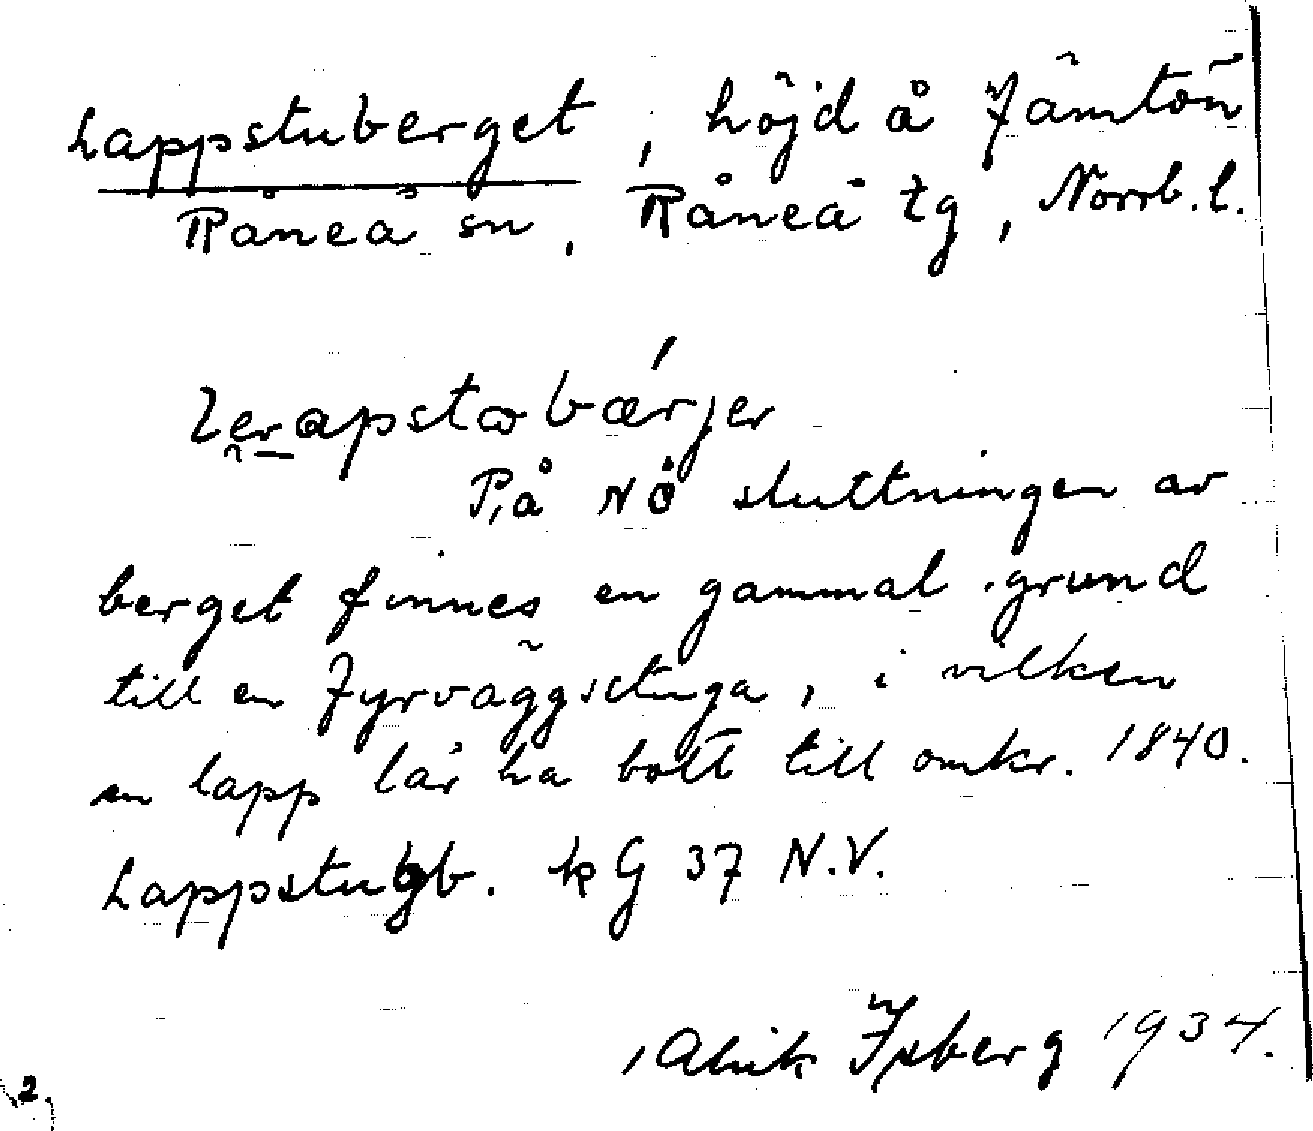 Lappstuberget, höjd å Jämtön
Råneå sn, Råneå tg, Norrb. l.
På NÖ sluttningen av
berget finnes en gammal grund
till en fyrväggstuga, i vilken
en lapp lär ha bott till omkr. 1840.
Lappstugb. kG 37 N.V.
Alrik Isberg 1934.
2.